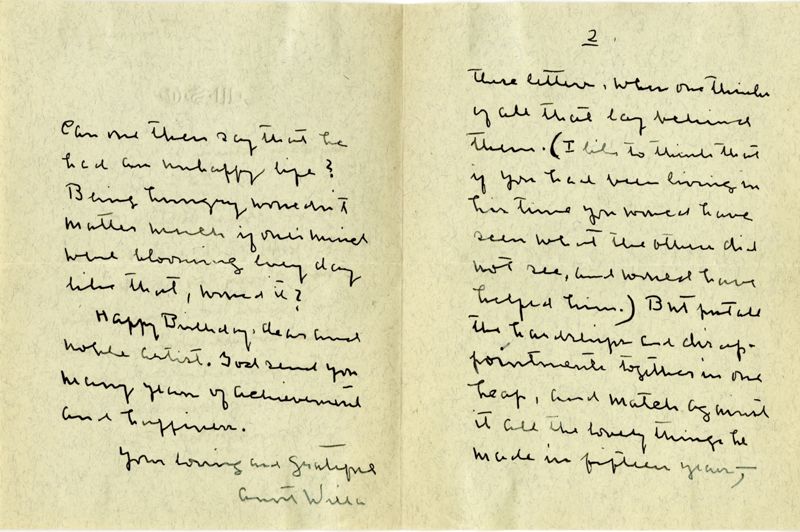 2.
these letters, when one thinks
of all that lay behind
them. (I like to think that
if you had been living in
his time you would have
seen what the others did
not see, and would have
helped him.) But put all
the hardships and disap-
pointments together in one
heap, and match against
it all the lovely things he
made in fifteen years,
Can one then say that he
had an unhappy life?
Being hungry wouldn't
matter much if one's mind
were blooming every day
like that, would it?
Happy Birthday, dear and
noble artist. God send you
many years of achievement
and happiness.
Your loving and grateful
Aunt Willa